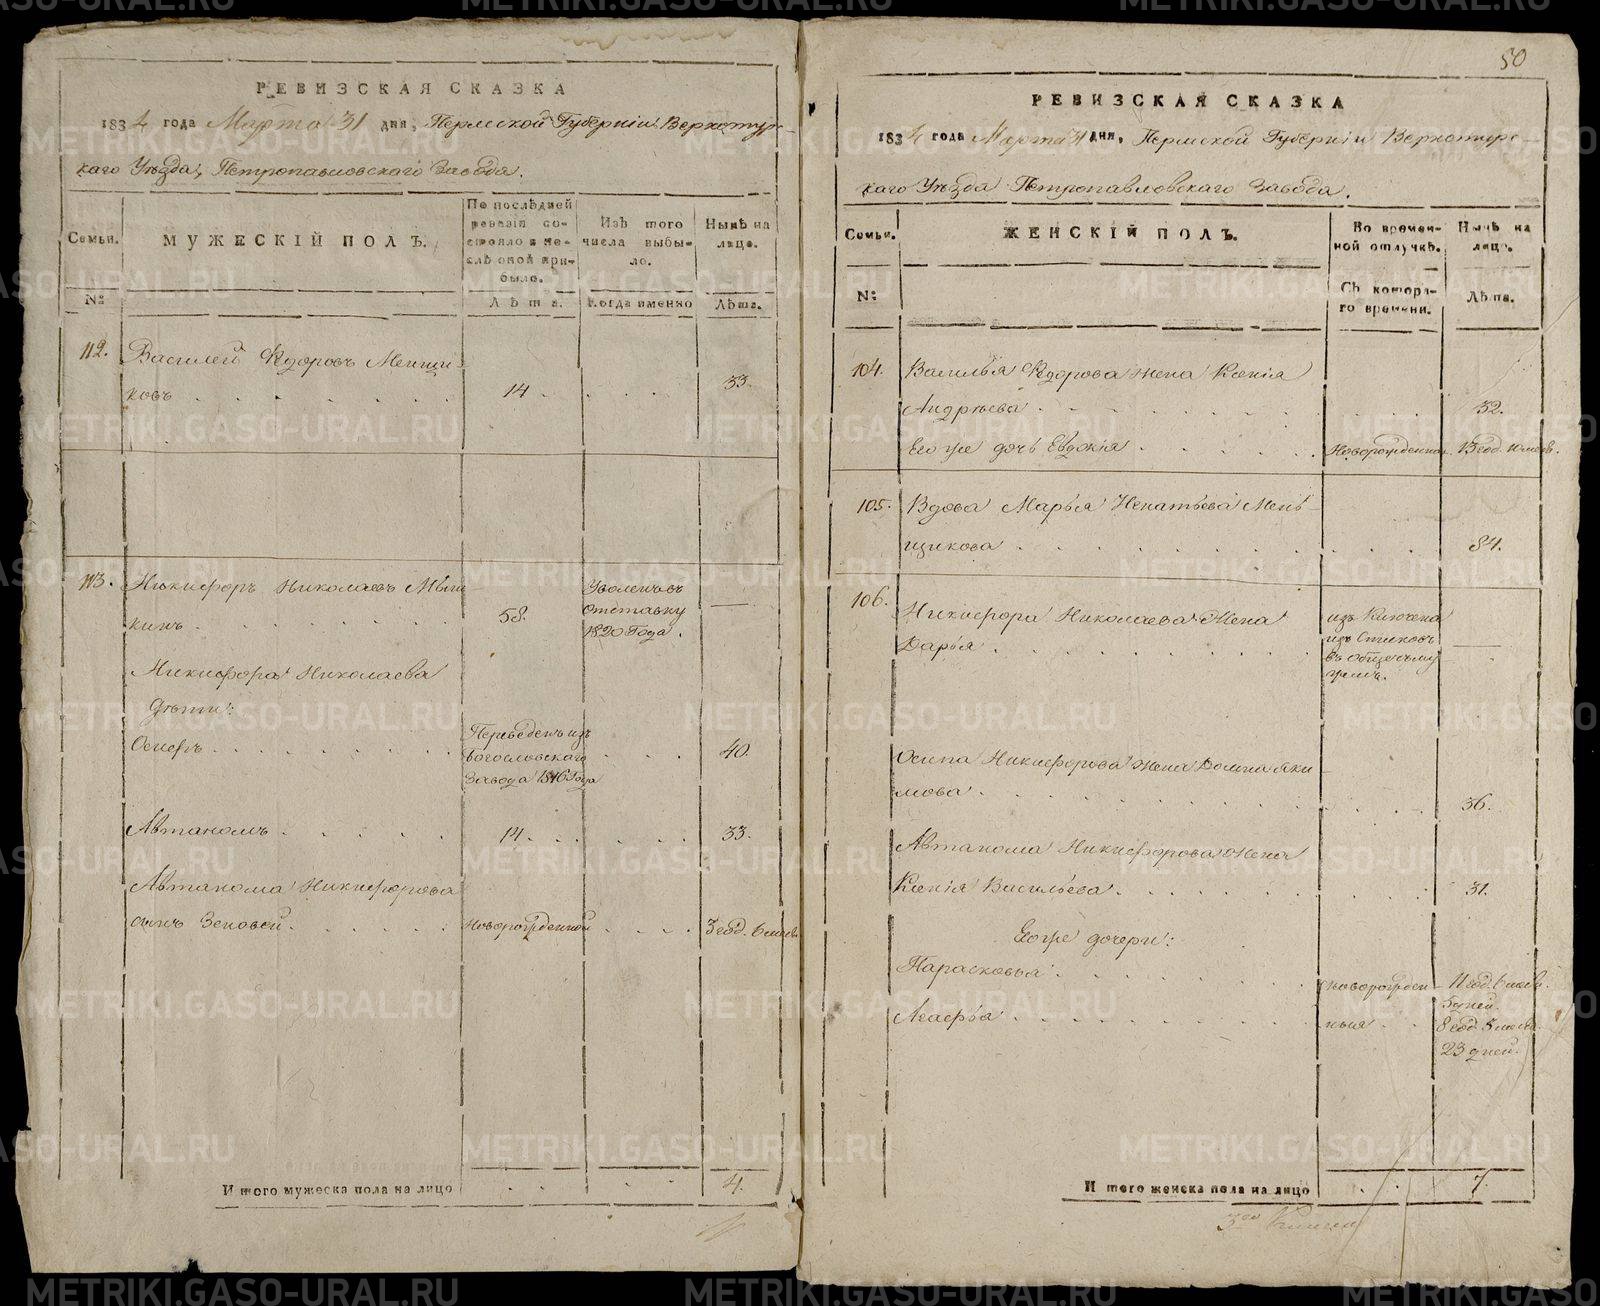 РЕВИЗСКАЯ СКАЗКА
1834 года Марта 31 дня, Пермской Губернiи Верхотур-
скаго Уѣзда, Петропавловскаго Завода.
Семьи.
МУЖЕСКIЙ ПОЛЪ.
По послѣдней ревизiи состояло и послѣ оной прибыло.
Изъ того числа выбыло.
Нынѣ на лицо.
№
Лѣта.
Когда именно
Лѣта.
112. Василей Ѳедоровъ Менщи-
ковъ 14 33.
113. Никифоръ Николаевъ
кинъ 58. Уволенъ въ отставку 1820 Года. —
Никифора Николаева
дѣти:
Осипъ Переведенъ изъ Богословскаго Завода 1816 Года 40.
Автаномъ 14 33.
Автанома Никифорова
сынъ Зеновей Новорожденной 3 год. 6 месяц.
И того мужеска пола на лицо 4.
50
РЕВИЗСКАЯ СКАЗКА
1834 года Марта 31 дня, Пермской Губернiи Верхотурс-
каго Уѣзда Петропавловскаго Завода.
Семьи.
ЖЕНСКIЙ ПОЛЪ.
Во временной отлучкѣ.
Нынѣ на лицо.
№
Съ котораго времени.
Лѣта.
104. Василья Ѳедорова жена Ксенiя
Андрѣева 32.
Его же дочь Евдокiя Новорожденная 13 год. 10 месяц.
105. Вдова Марья Игнатьева Мень-
щикова 84.
106. Никифора Николаева Жена
Дарья —
Осипа Никифорова жена Домна Яки-
мова 36.
Автанома Никифорова жена
Ксенiя Васильева 31.
Его же дочери:
Парасковья Новорожден- 11 год. 6 месяц. 5 дней.
Агафья ныя 8 год. 5 месяц. 23 дней.
И того женска пола на лицо 7.
METRIKI.GASO-URAL.RU